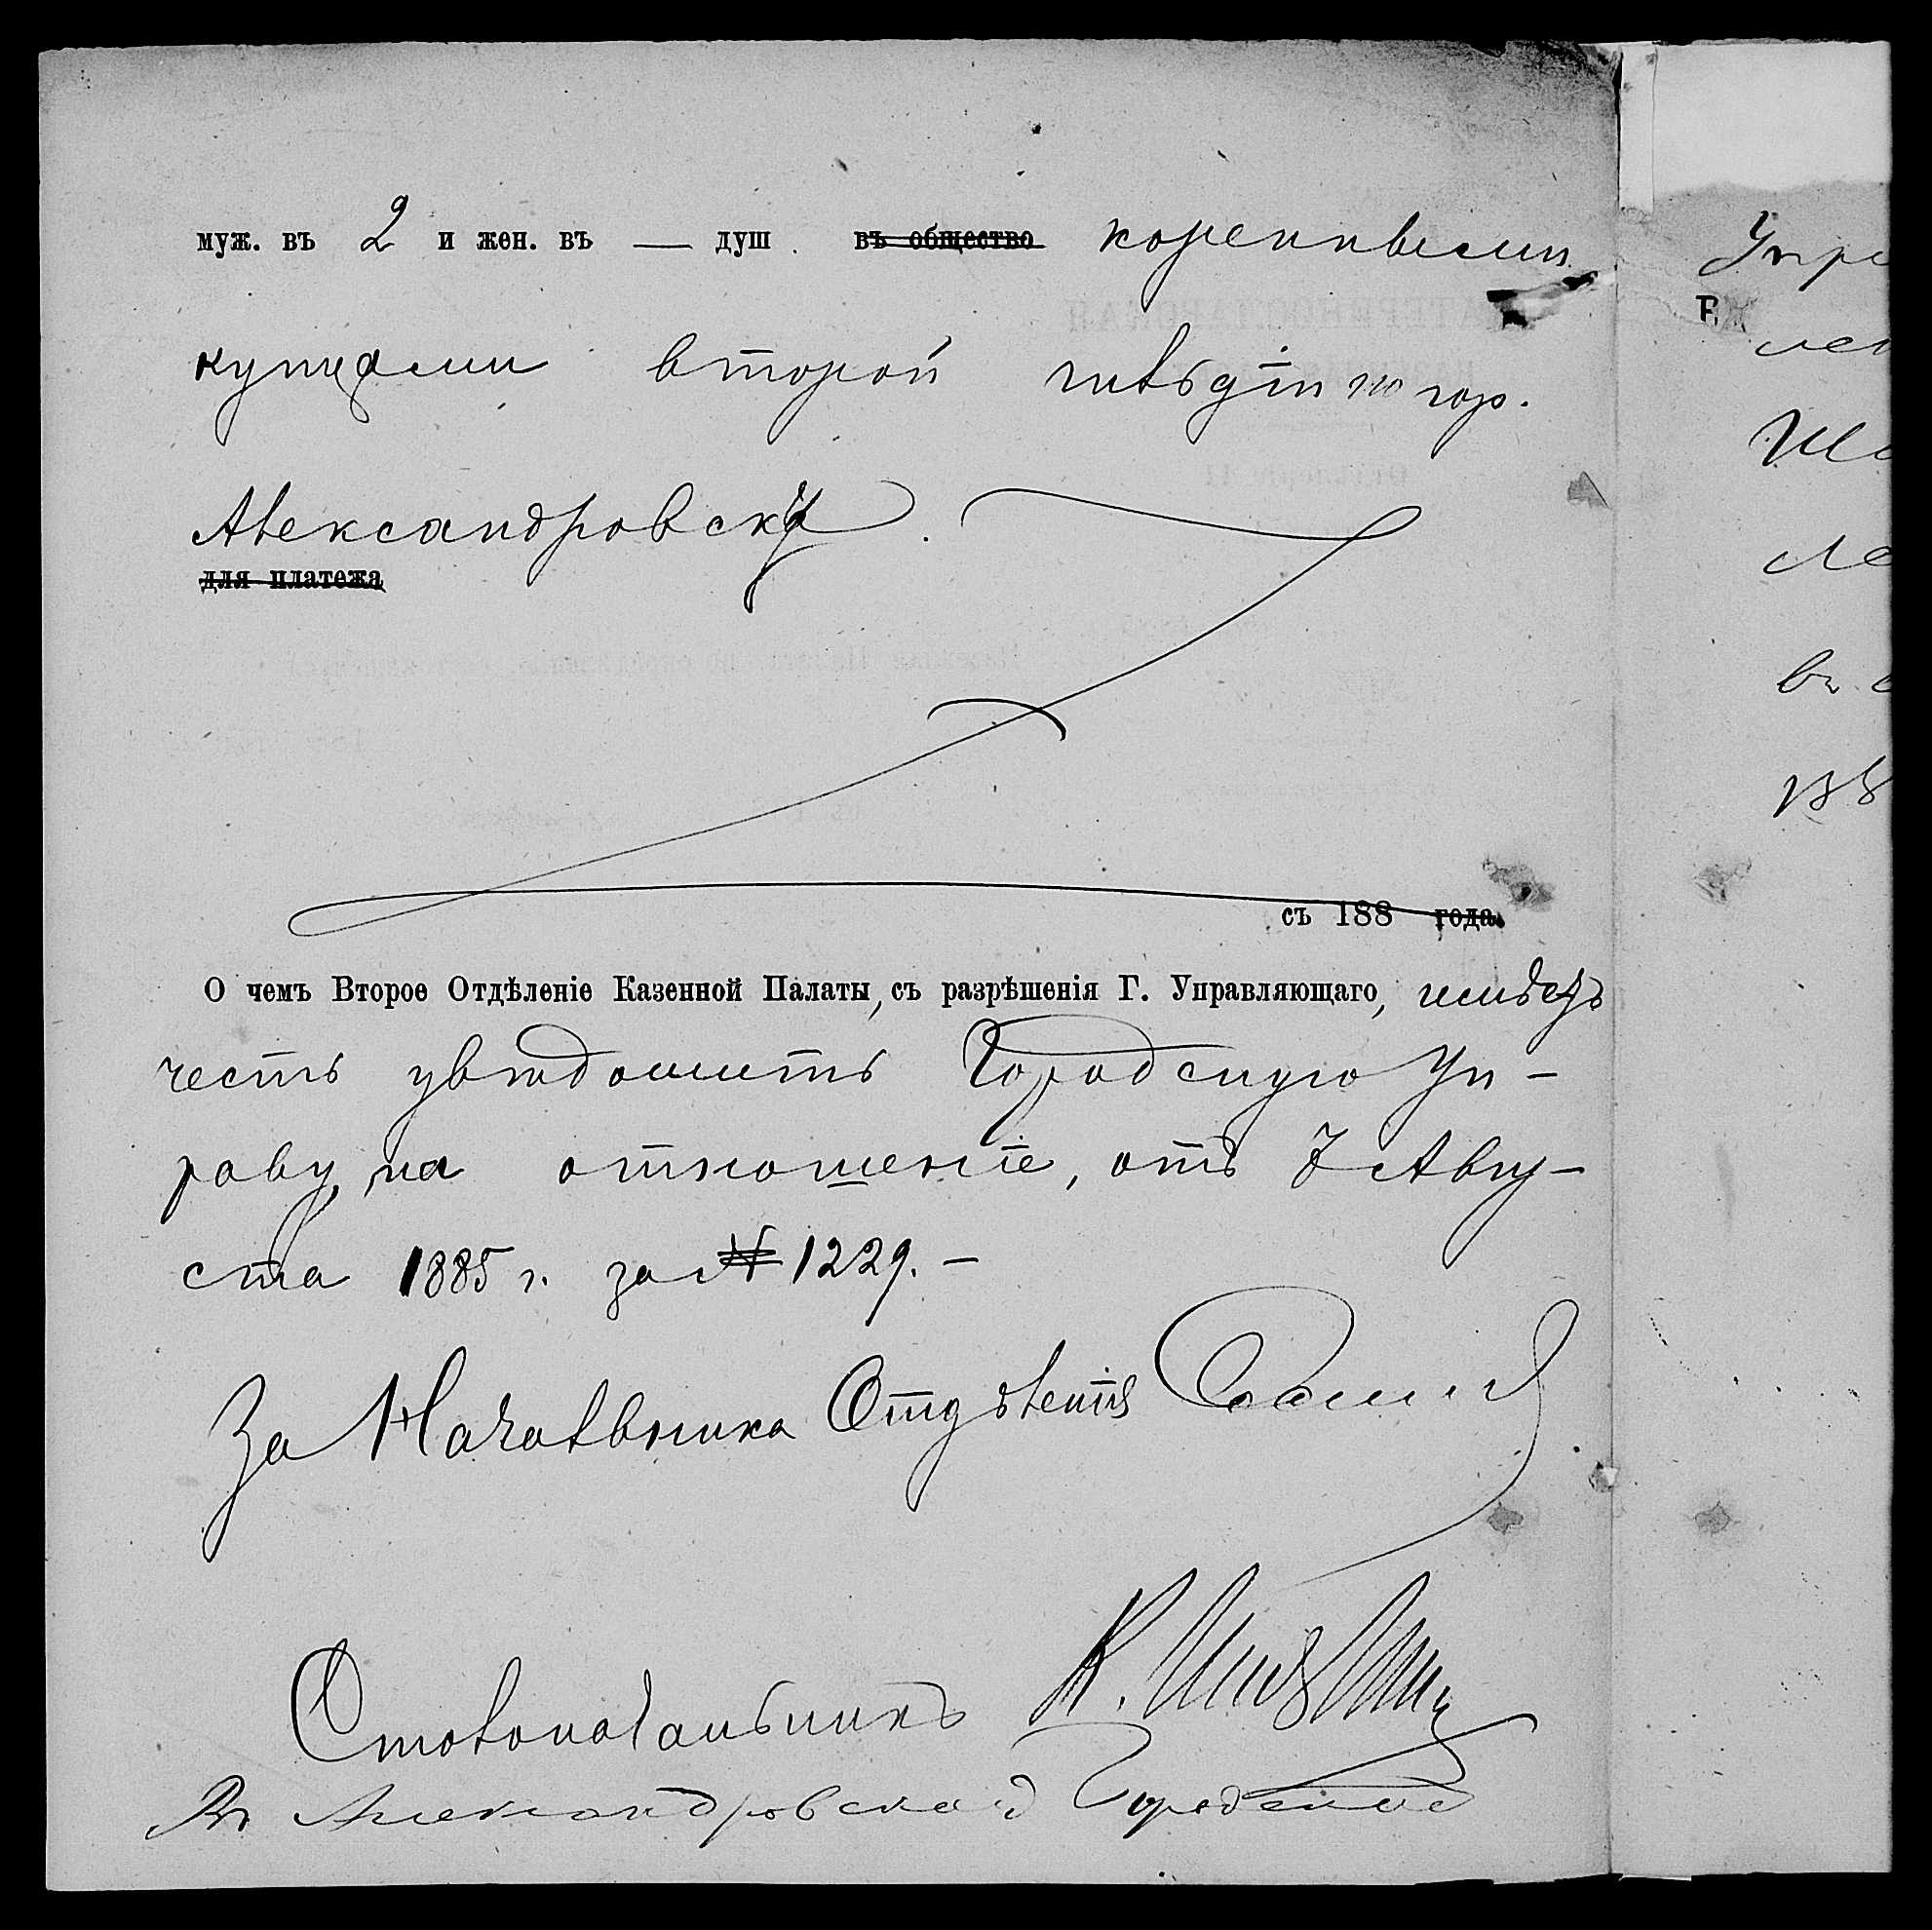 муж. въ 2 и жен. въ — душ. въ общество коренными
купцами второй гильдіи по гор.
Александровску.
для платежа
съ 188 года.
О чемъ Второе Отдѣленіе Казенной Палаты, съ разрѣшенія Г. Управляющаго, имѣетъ
честь увѣдомить Городскую Уп-
раву, на отношеніе, отъ 7 Авгу-
ста 1885 г. за № 1229. —
За Начальника Отдѣленія
Столоначальникъ К.
Въ Александровской Городской
Упра